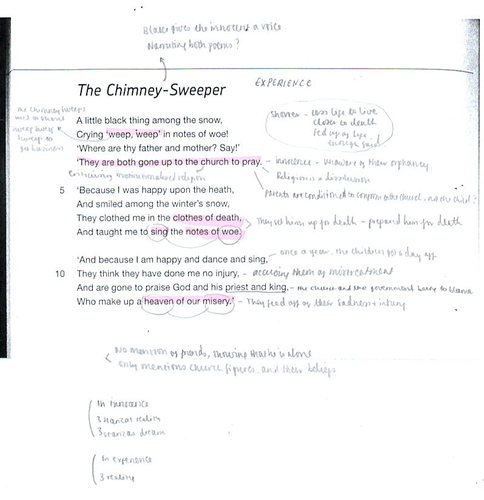 Blake gives the innocent a voice
Narrating both poems?
The Chimney-Sweeper
EXPERIENCE
The Chimney Sweeps
used to shout
sweep sweep
to
get business
A little black thing among the snow,
Crying 'weep, weep' in notes of woe!
'Where are thy father and mother? Say!'
'They are both gone up to the church to pray.
shorter - less life to live
closer to death
fed up of life,
- innocence - unaware of their orphancy
criticising institutionalised religion
Religion is a
Parents are conditioned to conform to the church, not the child?
5 'Because I was happy upon the heath,
And smiled among the winter's snow,
They clothed me in the clothes of death,
And taught me to sing the notes of woe.
> They set him up for death - prepared him for death
'And because I am happy and dance and sing,
- once a year, the children get a day off
10 They think they have done me no injury,
- accusing them of mistreatment
And are gone to praise God and his priest and king,
- the church and the government being to blame
Who make up a heaven of our misery.'
- They feed off of their sadness + injury
No mention of friends, showing that he is alone
only mentions church figures, and their beliefs
In Innocence
3 stanzas reality
3 stanzas dream
In experience
3 reality